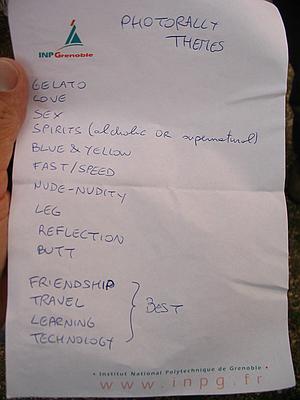 INP Grenoble
PHOTORALLY
THEMES
GELATO
LOVE
SEX
SPIRITS (alcholic OR supernatural)
BLUE & YELLOW
FAST/SPEED
NUDE-NUDITY
LEG
REFLECTION
BUTT
FRIENDSHIP
TRAVEL
BEST
LEARNING
TECHNOLOGY
• Institut National Polytechnique de Grenoble •
www.inpg.fr